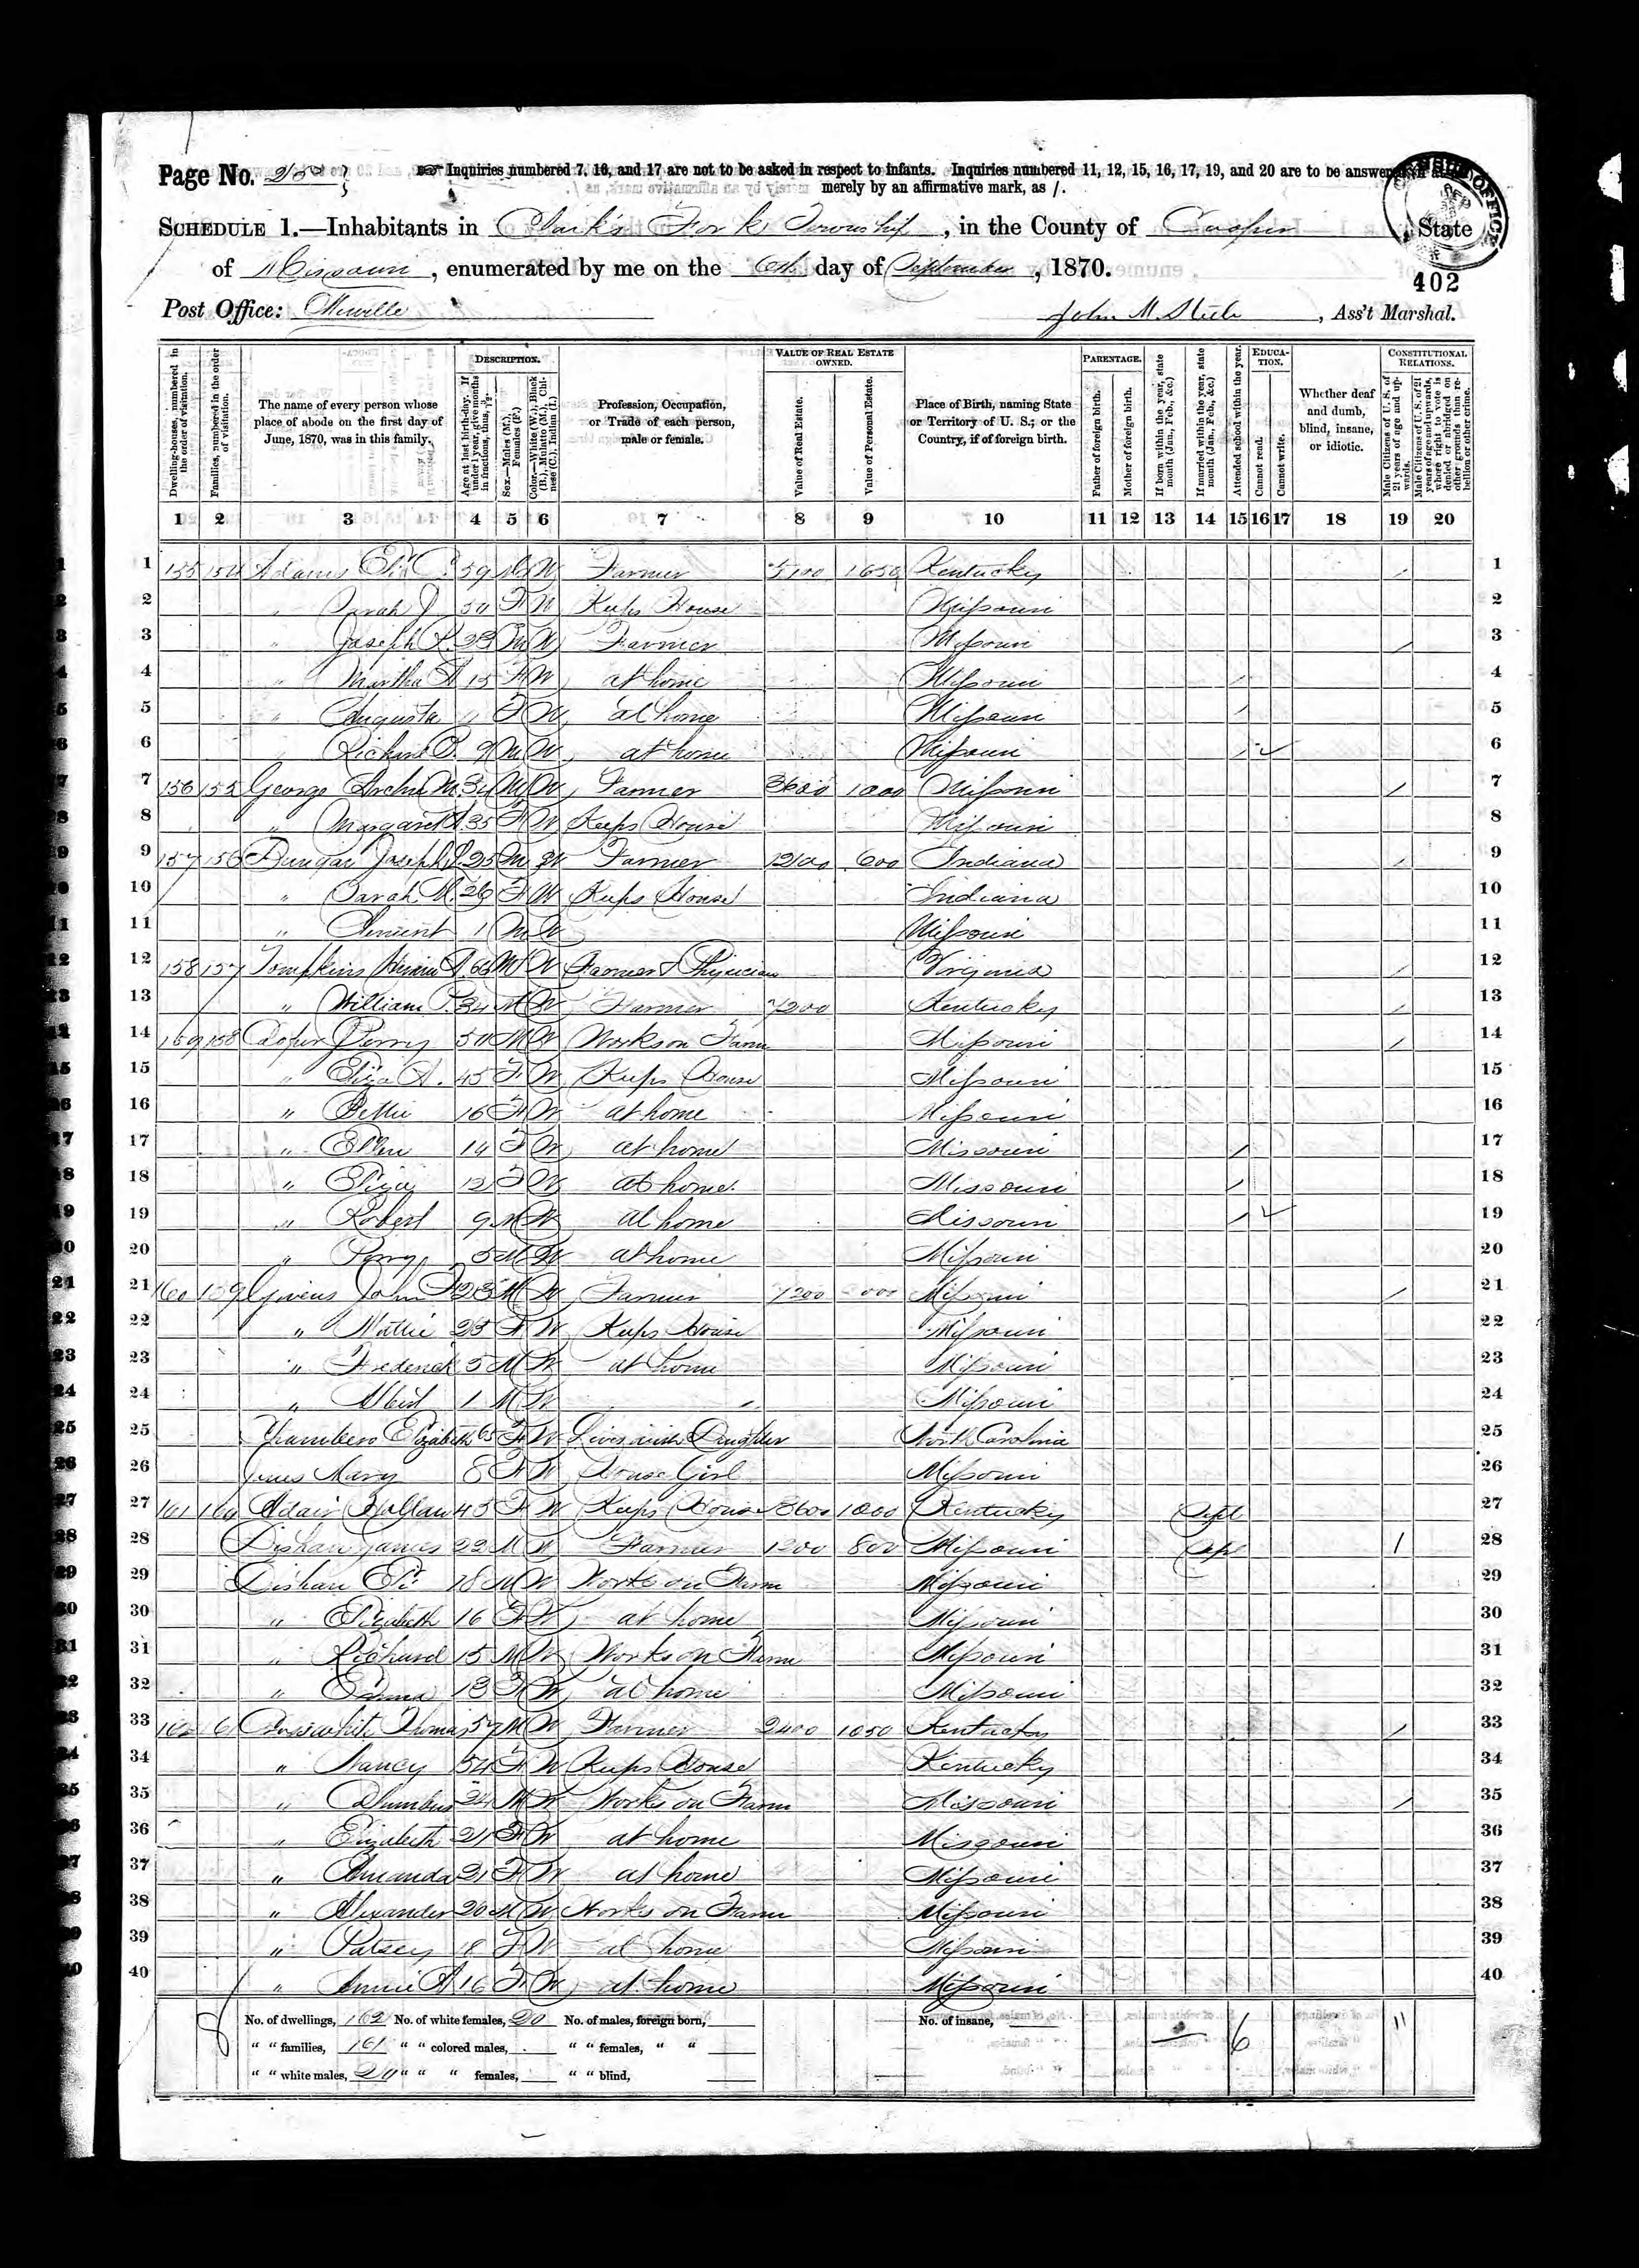 Page No. 20
☞ Inquiries numbered 7, 16, and 17 are not to be asked in respect to infants. Inquiries numbered 11, 12, 15, 16, 17, 19, and 20 are to be answered
merely by an affirmative mark, as /.
SCHEDULE 1.—Inhabitants in Clark's Fork Township, in the County of Cooper, State
of Missouri, enumerated by me on the 6th day of September, 1870.
402
Post Office: John M. Steele, Ass't Marshal.
Dwelling-houses, numbered in the order of visitation.
Families, numbered in the order of visitation.
The name of every person whose place of abode on the first day of June, 1870, was in this family.
DESCRIPTION.
Age at last birth-day. If under 1 year, give months in fractions, thus, 3/12.
Sex.—Males (M.), Females (F.)
Color.—White (W.), Black (B.), Mulatto (M.), Chinese (C.), Indian (I.)
Profession, Occupation, or Trade of each person, male or female.
VALUE OF REAL ESTATE OWNED.
Value of Real Estate.
Value of Personal Estate.
Place of Birth, naming State or Territory of U. S.; or the Country, if of foreign birth.
PARENTAGE.
Father of foreign birth.
Mother of foreign birth.
If born within the year, state month (Jan., Feb., &c.)
If married within the year, state month (Jan., Feb., &c.)
Attended school within the year.
EDUCATION.
Cannot read.
Cannot write.
Whether deaf and dumb, blind, insane, or idiotic.
CONSTITUTIONAL RELATIONS.
Male Citizens of U. S. of 21 years of age and upwards.
Male Citizens of U. S. of 21 years of age and upwards, where right to vote is denied or abridged on other grounds than rebellion or other crime.
1 2 3 4 5 6 7 8 9 10 11 12 13 14 15 16 17 18 19 20
1 155 154 Adams Eli 59 M W Farmer 5100 1650 Kentucky / 1
2 " Sarah J. 50 F W Keeps House Missouri 2
3 " Joseph 23 M W Farmer Missouri / 3
4 " Martha A 15 F W at home Missouri / 4
5 " Augusta 11 F W at home Missouri / 5
6 " Richard 9 M W at home Missouri / ✓ 6
7 156 155 George M. 34 M W Farmer 3600 1000 Missouri / 7
8 " Margaret A 35 F W Keeps House Missouri 8
9 157 156 Joseph 25 M W Farmer 1200 600 Indiana / 9
10 " Sarah M. 26 F W Keeps House Indiana 10
11 " Clement 1 M W Missouri 11
12 158 157 Tompkins 66 M W Farmer & Physician Virginia / 12
13 " William 34 M W Farmer 7200 Kentucky / 13
14 159 158 Perry 50 M W Works on Farm Missouri / 14
15 " Eliza A. 45 F W Keeps House Missouri 15
16 " Bettie 16 F W at home Missouri 16
17 " Ellen 14 F W at home Missouri / 17
18 " Eliza 12 F W at home Missouri / 18
19 " Robert 9 M W at home Missouri / ✓ 19
20 " Perry 5 M W at home Missouri 20
21 160 159 Givens John 28 M W Farmer 7200 Missouri / 21
22 " Mattie 25 F W Keeps House Missouri 22
23 " Frederick 5 M W at home Missouri 23
24 " Albert 1 M W Missouri 24
25 Elizabeth 65 F W Lives with Daughter North Carolina 25
26 Jones Mary 8 F W House Girl Missouri 26
27 161 160 Adair 45 F W Keeps House 3600 1000 Kentucky Sept 27
28 Dishan James 22 M W Farmer 1200 800 Missouri / 28
29 Dishan Eli 18 M W Works on Farm Missouri 29
30 " Elizabeth 16 F W at home Missouri 30
31 " Richard 15 M W Works on Farm Missouri 31
32 " Emma 13 F W at home Missouri 32
33 162 161 Crosswhite Thomas 57 M W Farmer 2400 1050 Kentucky / 33
34 " Nancy 54 F W Keeps House Kentucky 34
35 " Columbus 24 M W Works on Farm Missouri / 35
36 " Elizabeth 21 F W at home Missouri 36
37 " Amanda 21 F W at home Missouri 37
38 " Alexander 20 M W Works on Farm Missouri 38
39 " Patsey 18 F W at home Missouri 39
40 " Annie A 16 F W at home Missouri 40
No. of dwellings, 162 No. of white females, 20 No. of males, foreign born, No. of insane, 6 11
" " families, 161 " " colored males, " " females, " "
" " white males, 20 " " " females, " " blind,